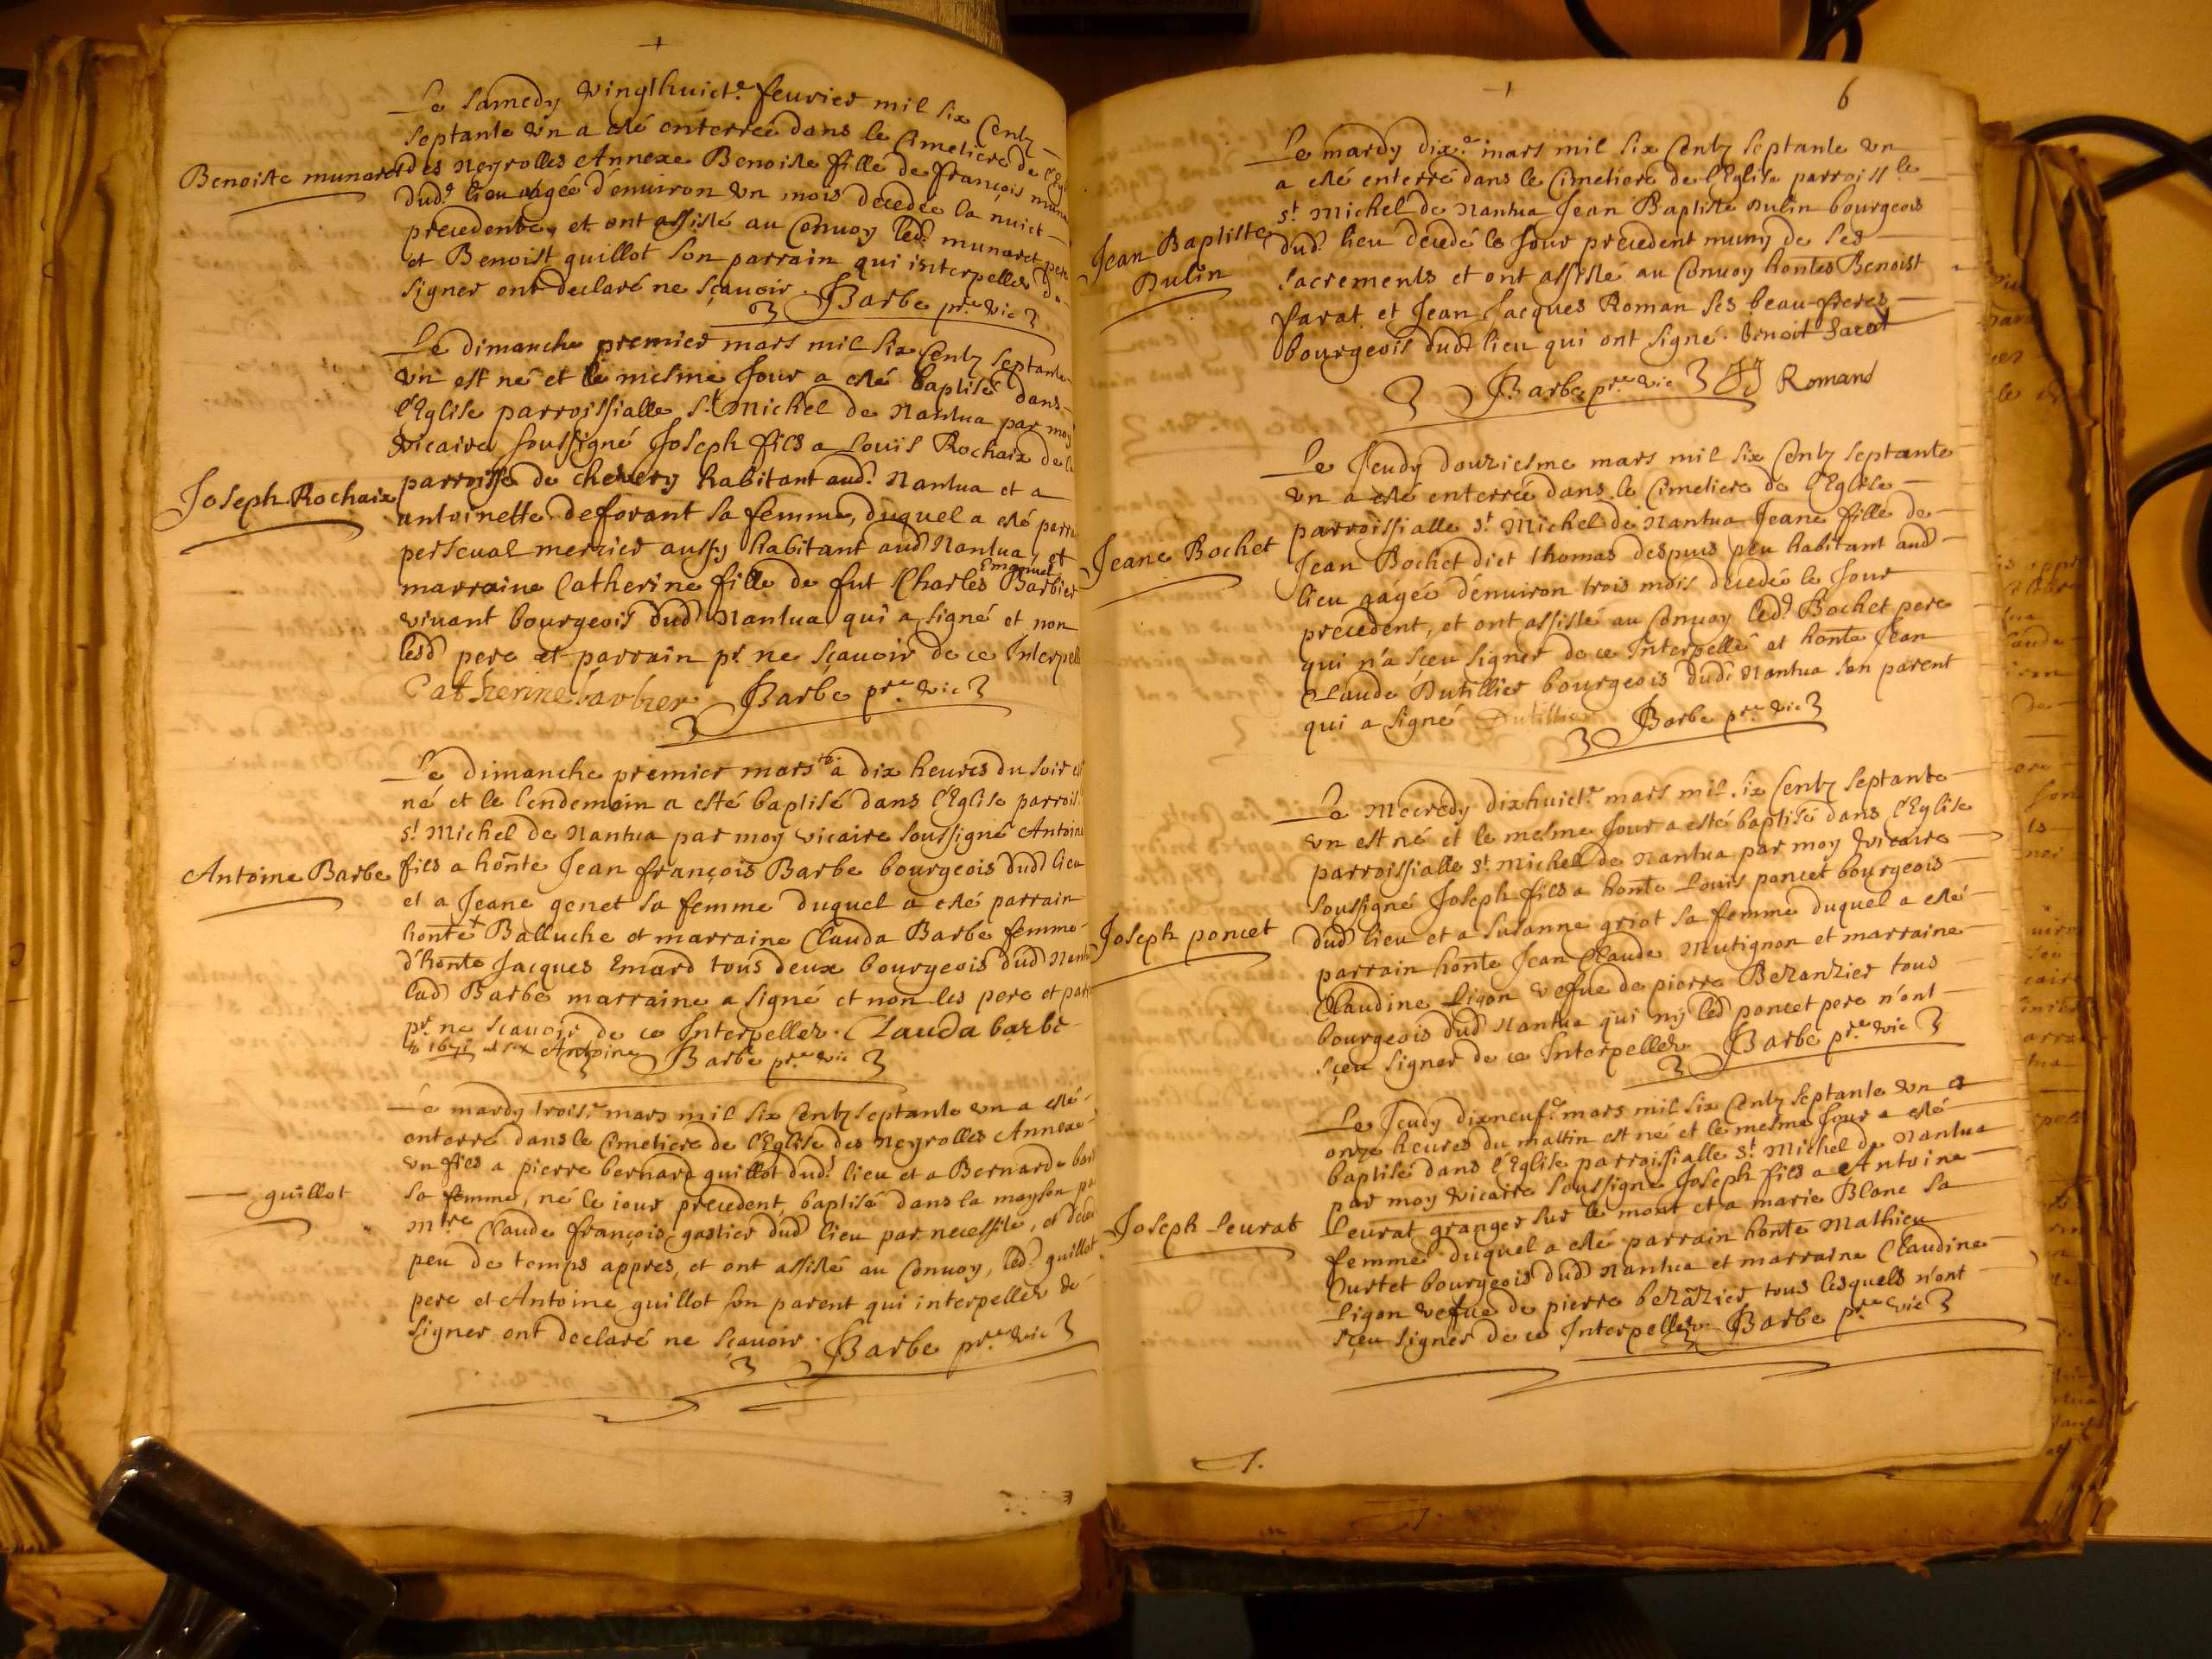 Le samedy vingthuict.e feurier mil six Centz
septante vn a esté enterreé dans le Cimetiere de
Benoiste munaret
des Neyrolles Annexe Benoiste fille de françois
dud.t lieu aágée d'enuiron vn mois decedée la nuict
precedente, et ont assisté au Conuoy led.t munaret pere
et Benoist guillot son parrain qui interpellez de
signer ont declaré ne sçauoir. Barbe pr.e vic
Le dimanche premier mars mil six Centz septante
vn est né et le mesme Jour a esté baptisé dans
l'Eglise parroissialle s.t Michel de Nantua par moy
vicaire soussigné Joseph fils a Louïs Rochaix de la
Joseph Rochaix
parroisse de chevery habitant aud.t Nantua et a
antoinette deforant sa femme, duquel a esté
perseual mercier aussy habitant aud.t Nantua, et
Emanuel
marraine Catherine fille de fut Charles Barbier
viuant bourgeois dud.t Nantua qui a signé et non
lesd. pere et parrain pr. ne sçauoir de ce
Catherine barbier Barbe pr.e vic
Le dimanche premier mars à dix heures du soir
né et le lendemain a esté baptisé dans l'Eglise
s.t Michel de Nantua par moy vicaire soussigné
Antoine Barbe
fils a hon.te Jean françois Barbe bourgeois dud.t lieu
et a Jeane genet sa femme duquel a esté parrain
hon.te + Balluche et marraine Clauda Barbe femme
d'hon.te Jacques Emard tous deux bourgeois dud.t
lad. Barbe marraine a signé et non les pere et
pr. ne scauoir de ce Interpellez. Clauda barbe
1671 Antoine Barbe pr.e vic
Le mardy trois.e mars mil six Centz septante vn a esté
enterré dans le Cimetiere de l'Eglise des Neyrolles Annexe
vn fils a pierre bernard guillot dud.t lieu et a Bernarde
guillot
sa femme, né le iour precedent, baptisé dans la mayson
m.tre Claude françois gastier dud.t lieu par necessité, et
peu de temps appres, et ont assisté au Conuoy, led.t guillot
pere et Antoine guillot son parent qui interpellez de
signer ont declaré ne sçauoir. Barbe pr.e vic
6
Le mardy dix.e mars mil six Centz septante vn
a esté enterré dans le Cimetiere de l'Eglise parroiss.le
s.t Michel de Nantua Jean Baptiste Dulin bourgeois
Jean Baptiste
Dulin
dud.t lieu decedé le Jour precedent muny de ses
sacrements et ont assisté au Conuoy hontes Benoist
Sarat et Jean Jacques Roman ses beau-freres
bourgeois dud.t lieu qui ont signé. benoit Sarat
Barbe pr.e vic JJ Romand
Le Jeudy douziesme mars mil six Centz septante
vn a esté enterreé dans le Cimetiere de l'Eglise
parroissialle s.t Michel de Nantua Jeane fille de
Jeane Bochet
Jean Bochet dict thomas despuis peu habitant aud.
lieu aágée d'enuiron trois mois decedée le Jour
precedent, et ont assisté au Conuoy led.t Bochet pere
qui n'a sçeu signer de ce Interpellé et hon.te Jean
Claude Dutillier bourgeois dud.t Nantua son parent
qui a signé Dutillier Barbe pr.e vic
Le Mecredy dixhuict.e mars mil six Centz septante
vn est né et le mesme Jour a esté baptisé dans l'Eglise
parroissialle s.t Michel de Nantua par moy vicaire
soussigné Joseph fils a hon.te Louis poncet bourgeois
Joseph poncet
dud.t lieu et a Susanne griot sa femme duquel a esté
parrain hon.te Jean Claude Mutignon et marraine
Claudine Ligon vefue de pierre Bezanzier tous
bourgeois dud.t Nantua qui ny led.t poncet pere n'ont
sçeu signer de ce Interpellez Barbe pr.e vic
Le Jeudy dixneuf.e mars mil six Centz septante vn a
onze heures du mattin est né et le mesme Jour a esté
baptisé dans l'Eglise parroissialle s.t Michel de Nantua
par moy vicaire soussigné Joseph fils a Antoine
Joseph Leurat
Leurat granger sur le mont et a marie Blanc sa
femme duquel a esté parrain hon.te Mathieu
Durtet bourgeois dud.t Nantua et marraine Claudine
Ligon vefue de pierre bezanzier tous lesquels n'ont
sçeu signer de ce Interpellez. Barbe pr.e vic